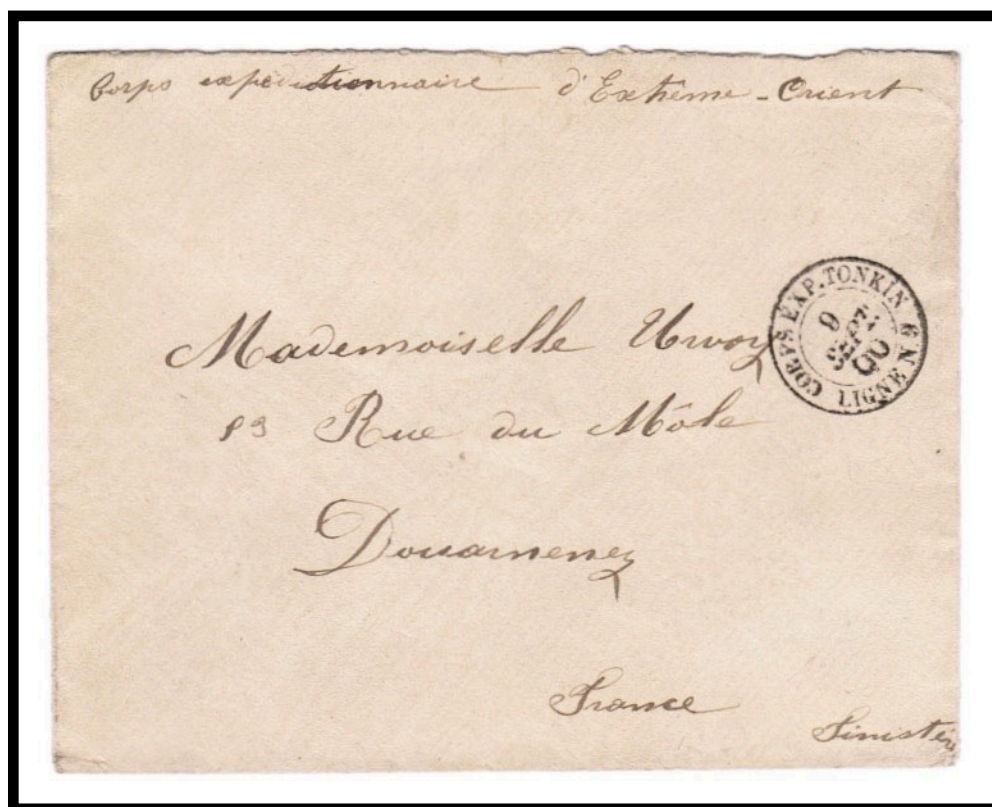 Corps expéditionnaire d'Extrême-Orient
CORPS EXP. TONKIN
9
SEPT
00
LIGNE N
Mademoiselle Urvoy
Rue du Môle
Douarnenez
France
Finistère